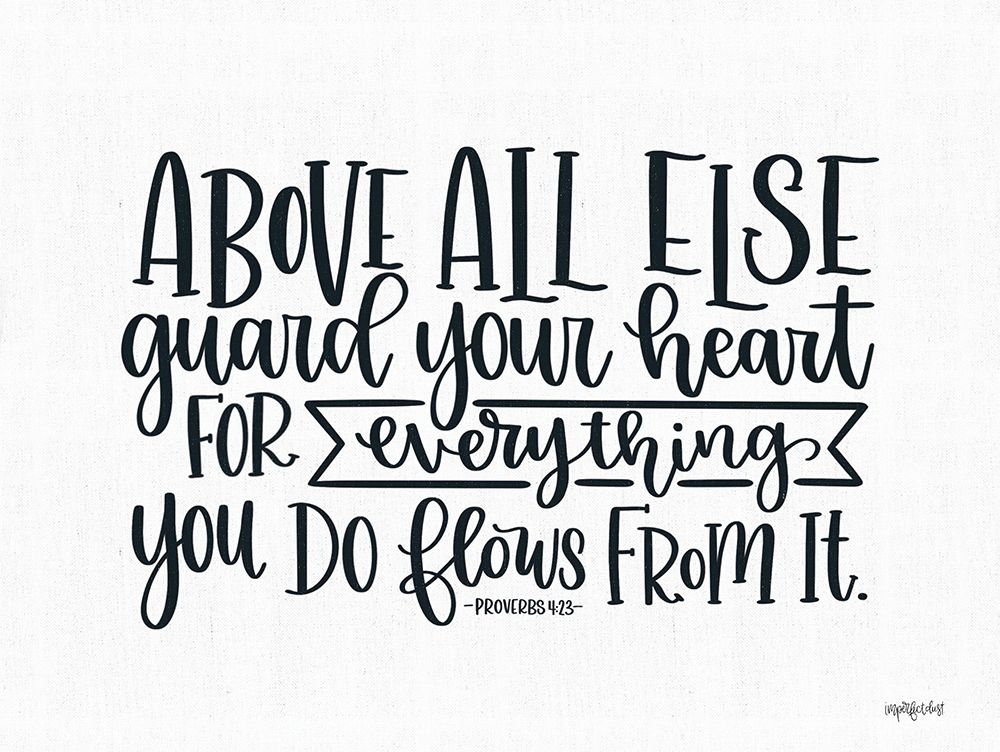 ABOVE ALL ELSE
guard your heart
FOR everything
you DO flows FROM It.
-PROVERBS 4:23-
imperfectdust